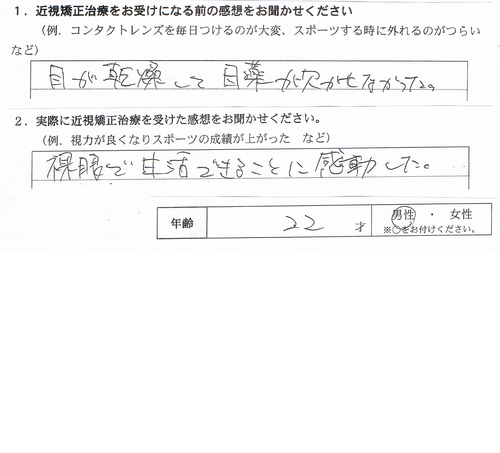 1．近視矯正治療をお受けになる前の感想をお聞かせください
（例．コンタクトレンズを毎日つけるのが大変、スポーツする時に外れるのがつらい
など）
目が乾燥して目薬が欠かせなかった。
2．実際に近視矯正治療を受けた感想をお聞かせください。
（例．視力が良くなりスポーツの成績が上がった　など）
裸眼で生活できることに感動した。
年齢　22　才　男性　・　女性
※○をお付けください。